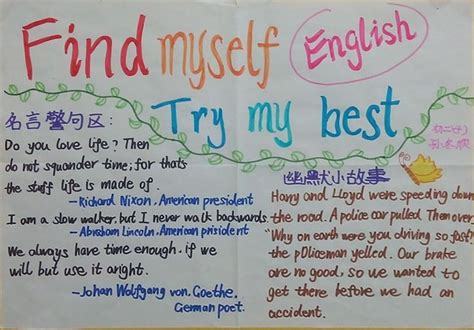 Find myself
English
Try my best
名言警句区:
Do you love life? Then
do not squander time; for thats
the stuff life is made of.
—Richard Nixon. American president
I am a slow walker, but I never walk backwards.
—Abraham Lincoln. American prisident
We always have time enough, if we
will but use it aright.
-Johan Wolfgang von. Goethe.
German poet.
初二
幽默小故事
Harry and Lloyd were speeding down
the road. A police car pulled Them over.
"Why on earth were you driving so fast?
the policeman yelled. Our brake
are no good, so we wanted to
get there before we had an
accident.